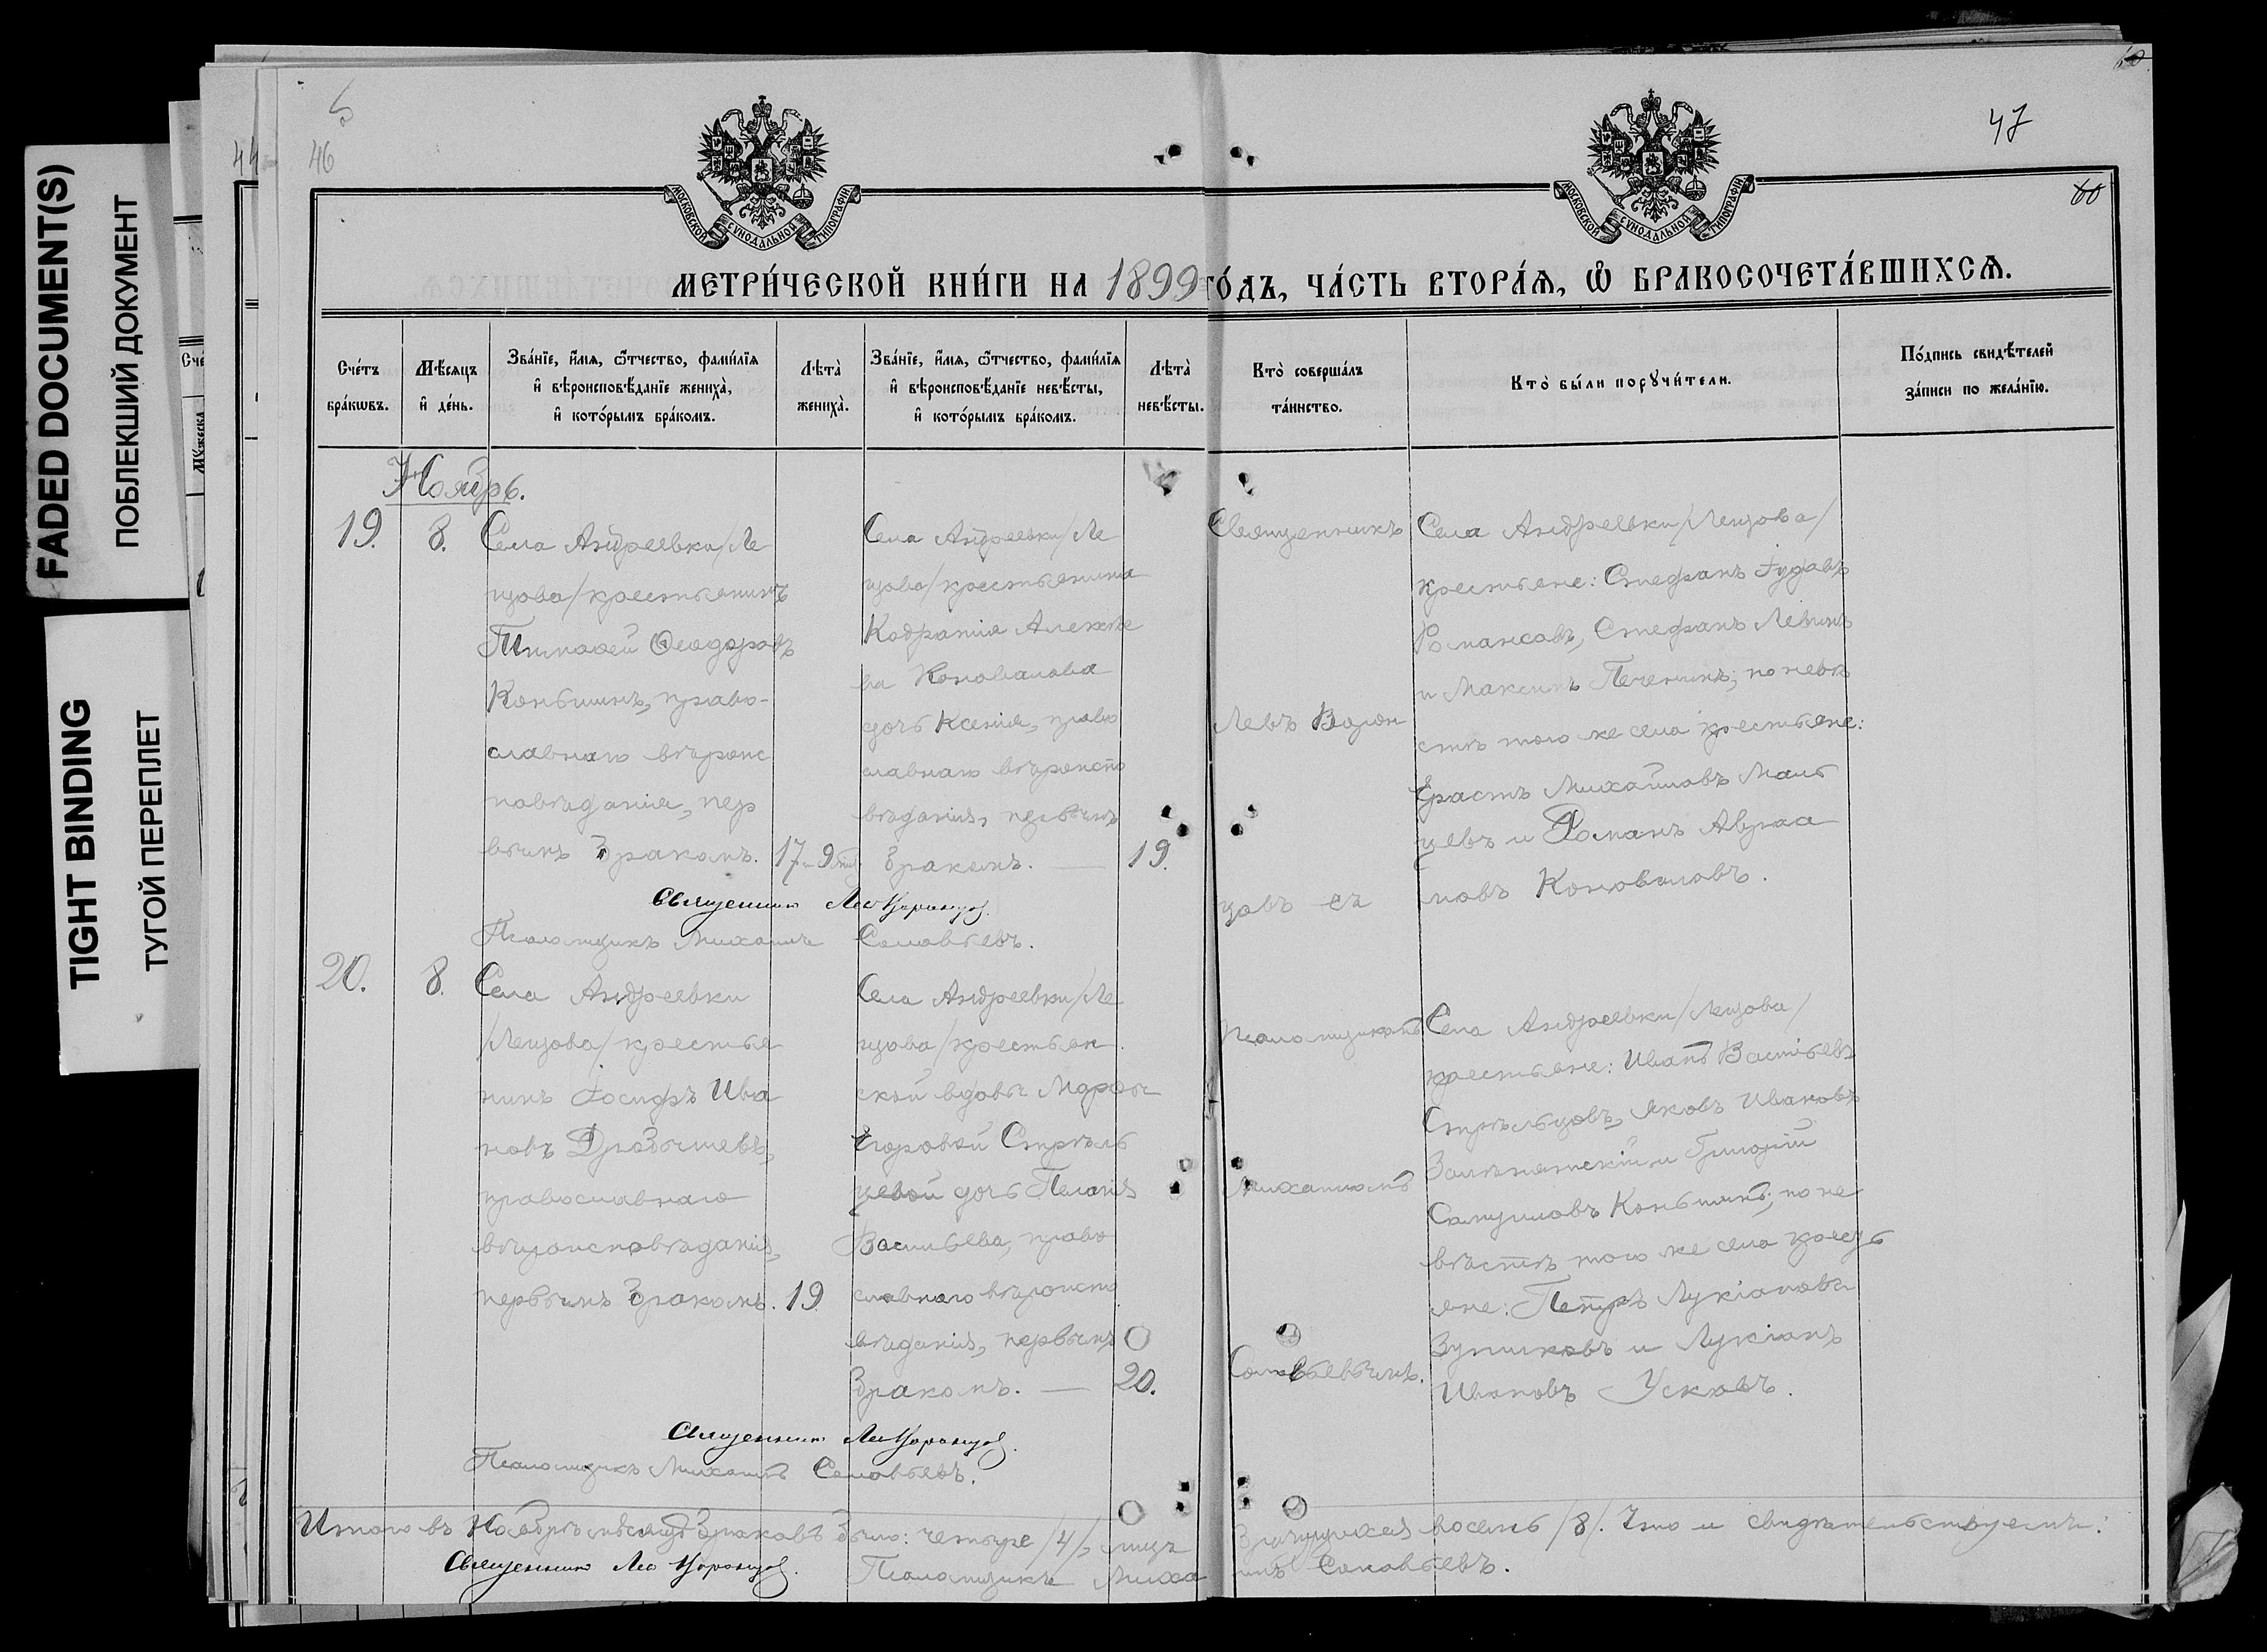 FADED DOCUMENT(S)
ПОБЛЕКШИЙ ДОКУМЕНТ
TIGHT BINDING
ТУГОЙ ПЕРЕПЛЕТ
46
47
МОСКОВСКОЙ СѴНОДАЛЬНОЙ ТИПОГРАФІИ
МОСКОВСКОЙ СѴНОДАЛЬНОЙ ТИПОГРАФІИ
МЕТРИ́ЧЕСКОЙ КНИ́ГИ НА 1899 ГО́ДЪ, ЧА́СТЬ ВТОРА́Ѧ, Ѽ БРАКОСОЧЕТА́ВШИХСѦ.
Сче́тъ бра́кѡвъ.
Мѣ́сяцъ и҆ де́нь.
Зва́нїе, и҆́мя, ѻ҆́тчество, фами́лїя
и҆ вѣроисповѣ́данїе жениха̀,
и҆ кото́рымъ бра́комъ.
Лѣта̀ жениха̀.
Зва́нїе, и҆́мя, ѻ҆́тчество, фами́лїя
и҆ вѣроисповѣ́данїе невѣ́сты,
и҆ кото́рымъ бра́комъ.
Лѣта̀ невѣ́сты.
Кто̀ соверша́лъ та́инство.
Кто̀ бы́ли порꙋчи́тели.
По́дпись свидѣ́телей
за́писи по жела́нїю.
Ноябрь.
19.
8.
Села Андреевки /Ле
щова/ крестьянинъ
Тимофей Ѳеодоровъ
Коньшинъ, право-
славнаго вѣроис
повѣданія, пер
вымъ бракомъ.
17
Села Андреевки /Ле
щова/ крестьянина
Кодратія Алексѣе
ва Коновалова
дочь Ксенія, право
славнаго вѣроиспо
вѣданія, первымъ
бракомъ. —
19.
Священникъ
Левъ Ворон
цовъ съ
Села Андреевки /Лещова/
крестьяне: Стефанъ Іудовъ
Романсовъ, Стефанъ Левинъ
и Максимъ Печенинъ; по невѣ
стѣ того же села крестьяне:
Ерастъ Михайловъ Маль
цевъ и Романъ Авраа
мовъ Коноваловъ.
Священникъ Лев Воронцов.
Псаломщикъ Михаилъ Соловьевъ.
20.
8.
Села Андреевки
/Лещова/ крестья
нинъ Іосифъ Ива
новъ Дробышевъ,
православнаго
вѣроисповѣданія,
первымъ бракомъ.
19.
Села Андреевки /Ле
щова/ крестьян
ской вдовы Марфы
Егоровой Стрѣль
цевой дочь Пелагія
Васильева, право
славнаго вѣроиспо
вѣданія, первымъ
бракомъ. —
20.
Псаломщикомъ
Михаиломъ
Соловьевымъ.
Села Андреевки /Лещова/
крестьяне: Иванъ Васильевъ
Стрѣльцовъ, Яковъ Ивановъ
и Григорій
Самуиловъ Коньшинъ; по не
вѣстѣ того же села кресть
яне: Петръ Лукіановъ
Зупиковъ и Лукіанъ
Ивановъ Усковъ.
Священникъ Лев Воронцов.
Псаломщикъ Михаилъ Соловьевъ.
Итого въ Ноябрѣ мѣсяцѣ браковъ было: четыре /4/, лицъ брачущихся восемь /8/. Что и свидѣтельствуемъ:
Священникъ Лев Воронцов. Псаломщикъ Михаилъ Соловьевъ.